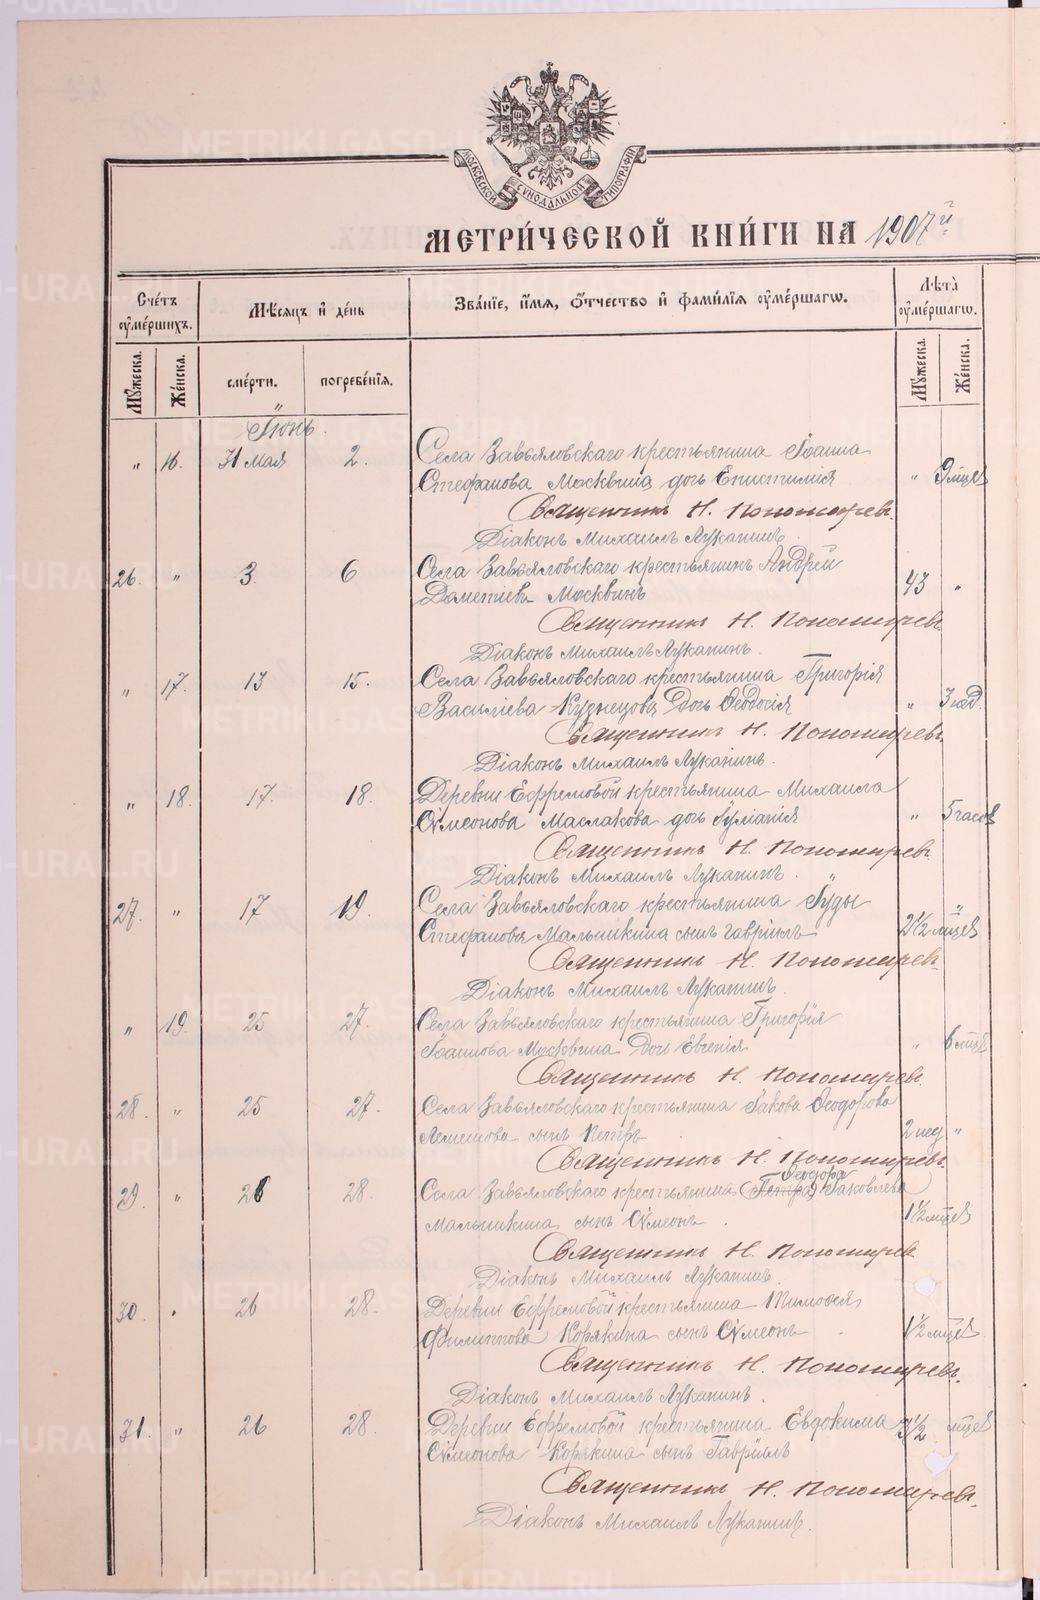 МОСКОВСКОЙ СѴНОДАЛЬНОЙ ТИПОГРАФІИ
МЕТРИ́ЧЕСКОЙ КНИ́ГИ НА 1907й
Сче́тъ ᲂу҆ме́ршихъ.
Мѣ́сяцъ и҆ де́нь
Зва́нїе, и҆́мя, ѻ҆́тчество и҆ фами́лїя ᲂу҆ме́ршагѡ.
Лѣ́та ᲂу҆ме́ршагѡ.
Мꙋ́жеска.
Же́нска.
сме́рти.
погребе́нїя.
Мꙋ́жеска.
Же́нска.
Іюнь.
" 16. 31 мая 2. Села Завьяловскаго крестьянина Іоанна
Стефанова Москвина дочь Епистимія " 9 мцев
Священникъ Н. Пономаревъ.
Діаконъ Михаилъ Луканинъ.
26. " 3. 6 Села Завьяловскаго крестьянинъ Андрей
Дометіевъ Москвинъ 43 "
Священникъ Н. Пономаревъ
Діаконъ Михаилъ Луканинъ.
" 17. 13 15. Села Завьяловскаго крестьянина Григорія
Василіева Кузнецова дочь Ѳеодосія " 3 нед.
Священникъ Н. Пономаревъ
Діаконъ Михаилъ Луканинъ.
" 18. 17. 18. Деревни Ефремовой крестьянина Михаила
Сѵмеонова Маслакова дочь Іуліанія " 5 часов
Священникъ Н. Пономаревъ
Діаконъ Михаилъ Луканинъ.
27. " 17 19. Села Завьяловскаго крестьянина Іуды
Стефанова Мальчикина сынъ Гавріилъ 2½ мцев "
Священникъ Н. Пономаревъ.
Діаконъ Михаилъ Луканинъ.
" 19. 25 27. Села Завьяловскаго крестьянина Григорія
Іоаннова Москвина дочь Евгенія " 6 мцев
Священникъ Н. Пономаревъ.
28. " 25 27. Села Завьяловскаго крестьянина Іакова Ѳеодорова
Лемешова сынъ Петръ 2 нед "
Священникъ Н. Пономаревъ.
Ѳеодора
29 " 26 28. Села Завьяловскаго крестьянина (Петра) Іаковлева
Мальчикина сынъ Сѵмеонъ. 1½ мцев
Священникъ Н. Пономарев
Діаконъ Михаилъ Луканинъ.
30. " 26 28. Деревни Ефремовой крестьянина Тимоѳея
Филиппова Корякина сынъ Сѵмеонъ 1½ мцев
Священникъ Н. Пономаревъ.
Діаконъ Михаилъ Луканинъ.
31. " 26 28. Деревни Ефремовой крестьянина Евдокима 3½ мцев
Сѵмеонова Корякина сынъ Гавріилъ
Священникъ Н. Пономаревъ.
Діаконъ Михаилъ Луканинъ.
METRIKI.GASO-URAL.RU